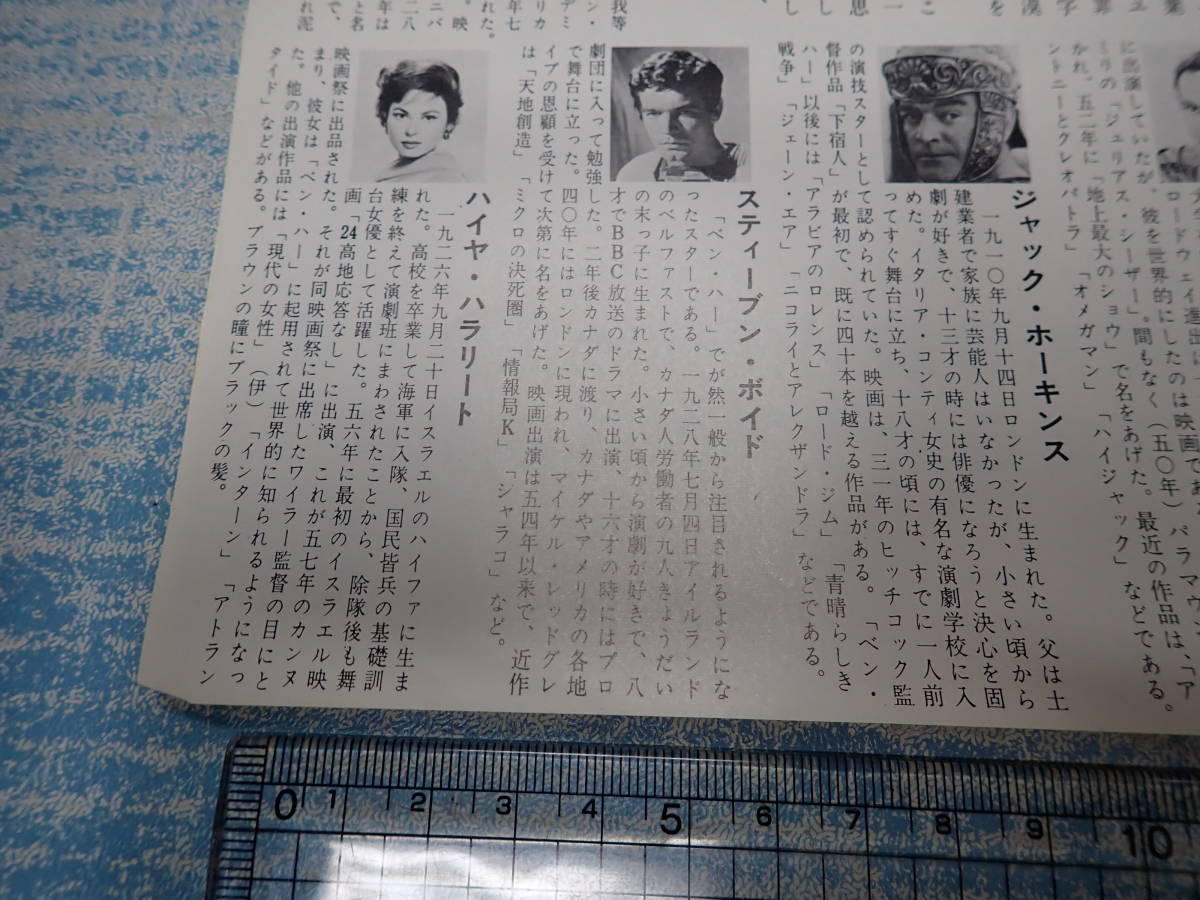 に出演していたが、彼を世界的にしたのは映画で
ミリの「ジュリアス・シーザー」。間もなく（五〇年）パラマウ
かれ、五二年に「地上最大のショウ」で名をあげた。最近の作品は、「ア
ントニーとクレオパトラ」「オメガマン」「ハイジャック」などである。
ジャック・ホーキンス
一九一〇年九月十四日ロンドンに生まれた。父は土
建業者で家族に芸能人はいなかったが、小さい頃から
劇が好きで、十三才の時には俳優になろうと決心を固
めた。イタリア・コンティ女史の有名な演劇学校に入
ってすぐ舞台に立ち、十八才の頃には、すでに一人前
の演技スターとして認められていた。映画は、三一年のヒッチコック監
督作品「下宿人」が最初で、既に四十本を越える作品がある。「ベン・
ハー」以後には「アラビアのロレンス」「ロード・ジム」「青晴らしき
戦争」「ジェーン・エア」「ニコライとアレクザンドラ」などである。
スティーブン・ボイド
「ベン・ハー」でが然一般から注目されるようにな
ったスターである。一九二八年七月四日アイルランド
のベルファストで、カナダ人労働者の九人きょうだい
の末っ子に生まれた。小さい頃から演劇が好きで、八
才でBBC放送のドラマに出演、十六才の時にはプロ
劇団に入って勉強した。二年後カナダに渡り、カナダやアメリカの各地
で舞台に立った。四〇年にはロンドンに現われ、マイケル・レッドグレ
イブの恩顧を受けて次第に名をあげた。映画出演は五四年以来で、近作
は「天地創造」「ミクロの決死圏」「情報局K」「シャラコ」など。
ハイヤ・ハラリート
一九二六年九月二十日イスラエルのハイファに生ま
れた。高校を卒業して海軍に入隊、国民皆兵の基礎訓
練を終えて演劇班にまわされたことから、除隊後も舞
台女優として活躍した。五六年に最初のイスラエル映
画「24高地応答なし」に出演、これが五七年のカンヌ
映画祭に出品された。それが同映画祭に出席したワイラー監督の目にと
まり、彼女は「ベン・ハー」に起用されて世界的に知られるようになっ
た。他の出演作品には「現代の女性」（伊）「インターン」「アトラン
タイド」などがある。ブラウンの瞳にブラックの髪。
0 1 2 3 4 5 6 7 8 9 10